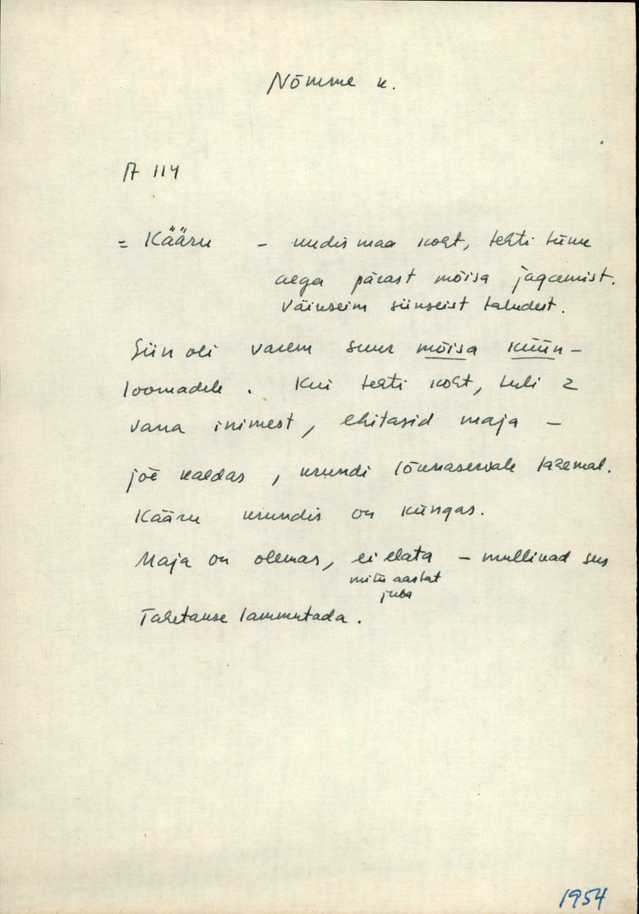 Nõmme k.
A 114
= Kääru – uudismaa koht, tehti hilise
aega pärast mõisa jagamist.
Väikseim siinseist taludest.
Siin oli varem suur mõisa küün –
loomadele. Kui tehti koht, tuli 2
vana inimest, ehitasid maja –
jõe kaldas, krundi lõunaservale lähemal.
Kääru krundis on küngas.
Maja on olemas, ei elata – mullikad sees
mitu aastat
juba
Tahetakse lammutada.
1954